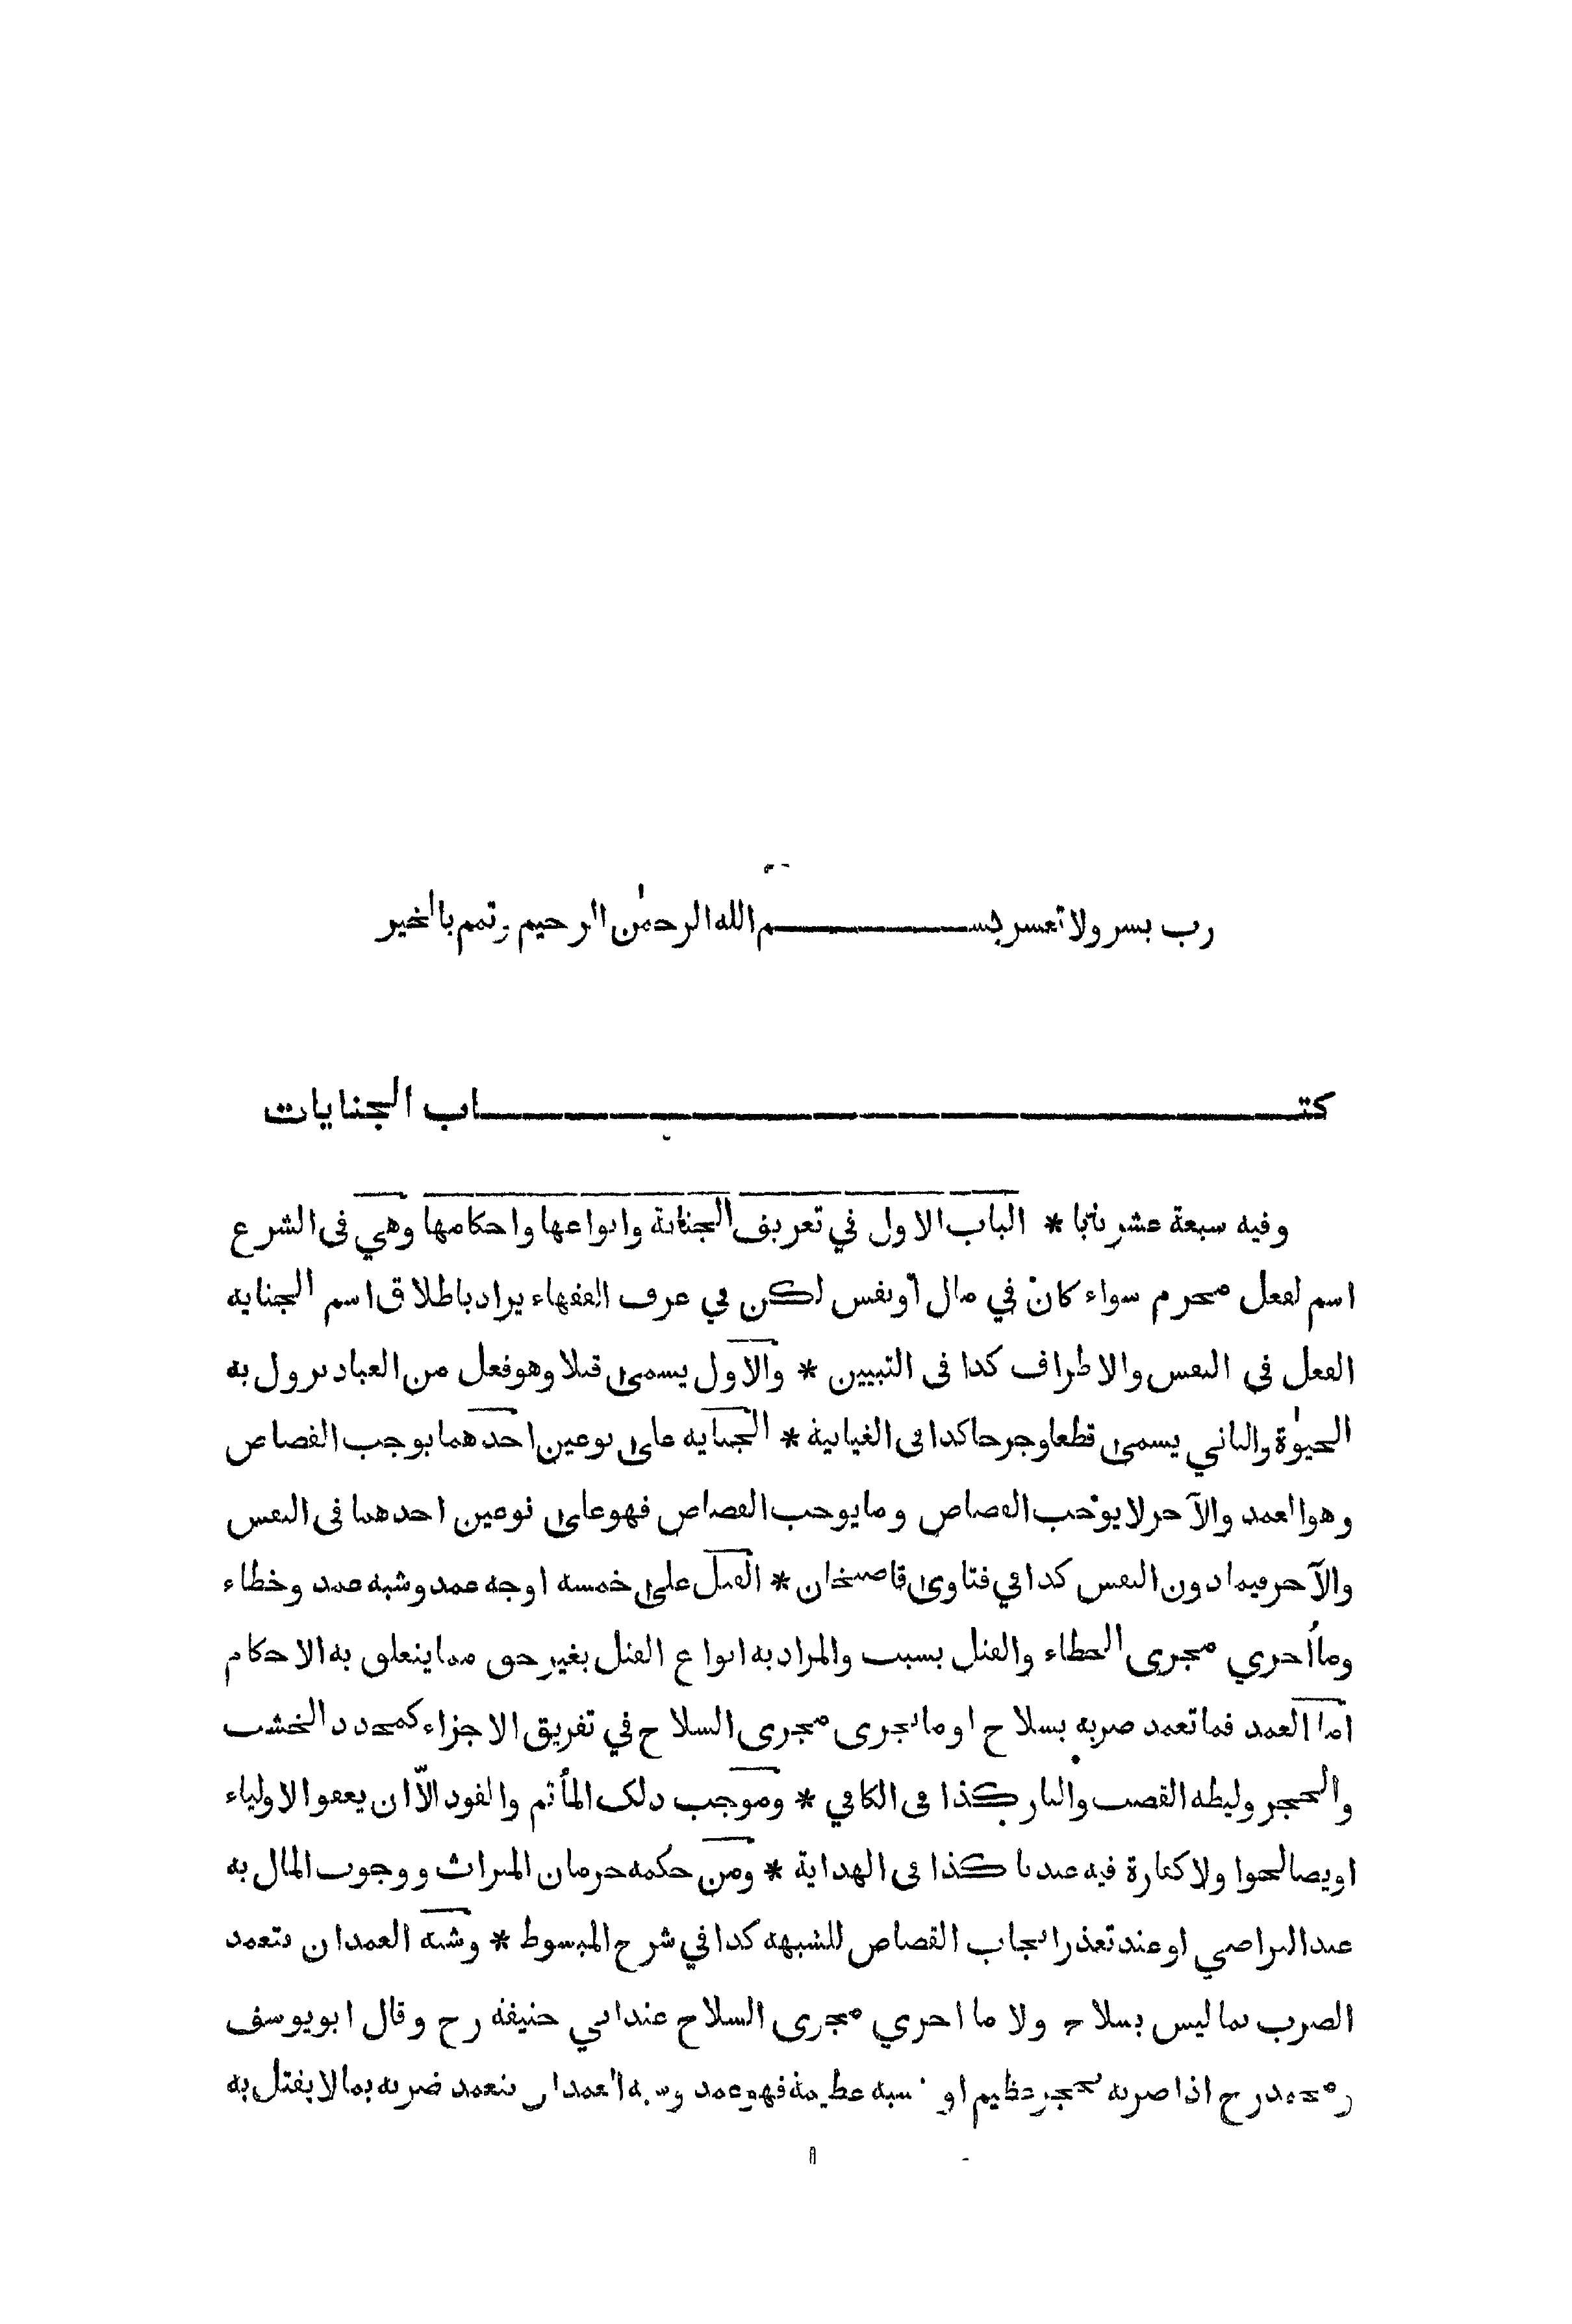 رب يسر ولا تعسر بسم الله الرحمٰن الرحيم وتمم بالخير
كتاب الجنايات
وفيه سبعة عشر بابا * الباب الاول في تعريف الجناية وانواعها واحكامها وهي فى الشرع
اسم لفعل محرم سواء كان في مال أو نفس لكن في عرف الفقهاء يراد باطلاق اسم الجناية
الفعل في النفس والاطراف كذا فى التبيين * والاول يسمى قتلا وهو فعل من العباد تزول به
الحيوٰة والثاني يسمى قطعا وجرحا كذا فى الغياثية * الجناية على نوعين احدهما يوجب القصاص
وهو العمد والآخر لا يوجب القصاص وما يوجب القصاص فهو على نوعين احدهما فى النفس
والآخر فيما دون النفس كذا في فتاوى قاضيخان * القتل على خمسة اوجه عمد وشبه عمد وخطاء
وما أجري مجرى الخطاء والقتل بسبب والمراد به انواع القتل بغير حق مما يتعلق به الاحكام
اما العمد فما تعمد ضربه بسلاح او ما يجرى مجرى السلاح في تفريق الاجزاء كمحدد الخشب
والحجر وليطة القصب والنار كذا فى الكافي * وموجب ذلك المأثم والقود الاّ ان يعفو الاولياء
او يصالحوا ولا كفارة فيه عندنا كذا فى الهداية * ومن حكمه حرمان الميراث ووجوب المال به
عند التراضي او عند تعذر ايجاب القصاص للشبهة كذا في شرح المبسوط * وشبه العمد ان يتعمد
الضرب بما ليس بسلاح ولا ما اجري مجرى السلاح عند ابي حنيفة رح وقال ابو يوسف
ومحمد رح اذا ضربه بحجر عظيم او خشبة عظيمة فهو عمد وشبه العمد ان يتعمد ضربه بما لا يقتل به